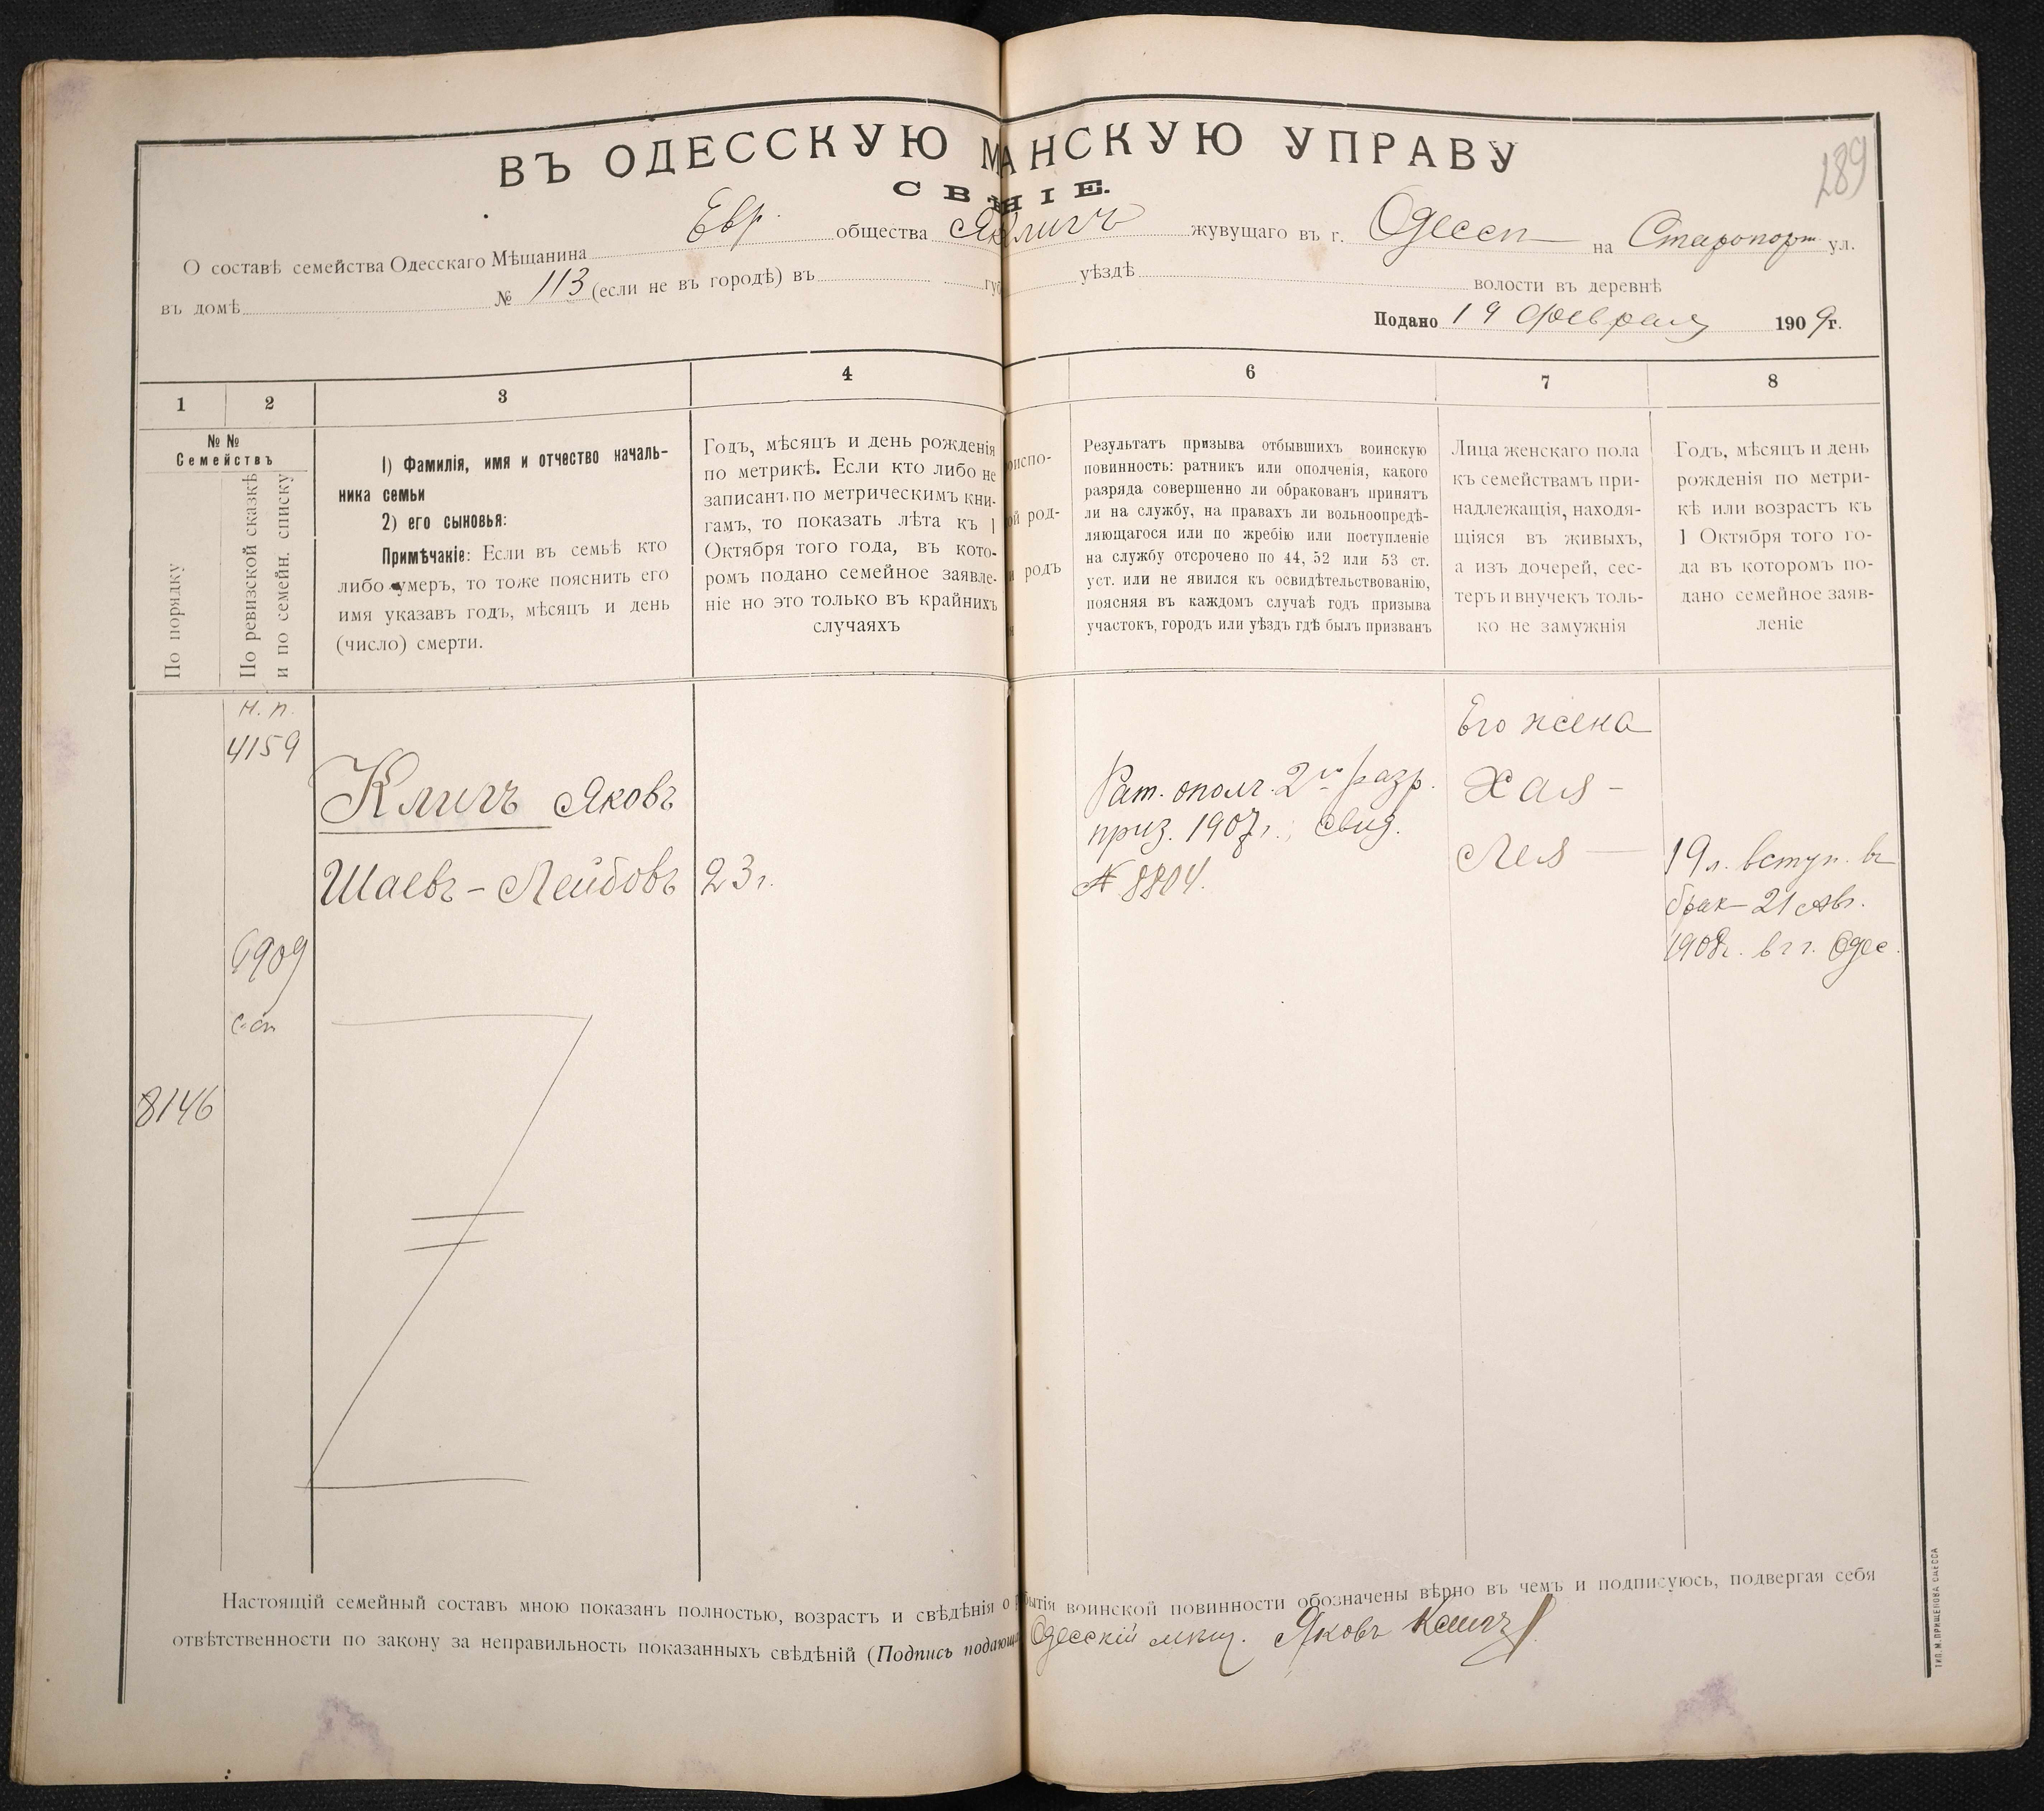 ВЪ ОДЕССКУЮ М АНСКУЮ УПРАВУ
СВѢ НІЕ.
289
О составѣ семейства Одесскаго Мѣщанина Евр. общества Як Кличъ жувущаго въ г. Одессѣ на Старопорт. ул.
въ домѣ № 113 (если не въ городѣ) въ губ уѣздѣ волости въ деревнѣ
Подано 19 Февраля 1909г.
1 2 3 4 6 7 8
№ №
Семействъ
По порядку
По ревизской сказкѣ
и по семейн. списку
1) Фамилія, имя и отчество началь-
ника семьи
2) его сыновья:
Примѣчаніе: Если въ семьѣ кто
либо умеръ, то тоже пояснить его
имя указавъ годъ, мѣсяцъ и день
(число) смерти.
Годъ, мѣсяцъ и день рожденія
по метрикѣ. Если кто либо не
записанъ по метрическимъ кни-
гамъ, то показать лѣта къ 1
Октября того года, въ кото-
ромъ подано семейное заявле-
ніе но это только въ крайнихъ
случаяхъ
оиспо-
ой род-
и родъ
Результатъ призыва отбывшихъ воинскую
повинность: ратникъ или ополченія, какого
разряда совершенно ли обракованъ принятъ
ли на службу, на правахъ ли вольноопредѣ-
ляющагося или по жребію или поступленіе
на службу отсрочено по 44, 52 или 53 ст.
уст. или не явился къ освидѣтельствованію,
поясняя въ каждомъ случаѣ годъ призыва
участокъ, городъ или уѣздъ гдѣ былъ призванъ
Лица женскаго пола
къ семействамъ при-
надлежащія, находя-
щіяся въ живыхъ,
а изъ дочерей, сес-
теръ и внучекъ толь-
ко не замужнія
Годъ, мѣсяцъ и день
рожденія по метри-
кѣ или возрастъ къ
1 Октября того го-
да въ которомъ по-
дано семейное заяв-
леніе
н. п.
4159
Кличъ Яковъ
Шаевъ-Лейбовъ
23 г.
Рат. ополч. 2го разр.
приз. 1907 г., свид.
№ 8804.
Его жена
Хая-
Лея
19 л. вступ. въ
брак 21 Авг.
1908г. в г. Одес.
1909
с-сп
8146
Настоящій семейный составъ мною показанъ полностью, возрастъ и свѣдѣнія о бытія воинской повинности обозначены вѣрно въ чемъ и подписуюсь, подвергая себя
отвѣтственности по закону за неправильность показанныхъ свѣдѣній (Подпись подающа Одесскій мѣщ. Яковъ Кличъ
ТИП. М. ПРИЩЕПОВА ОДЕССА